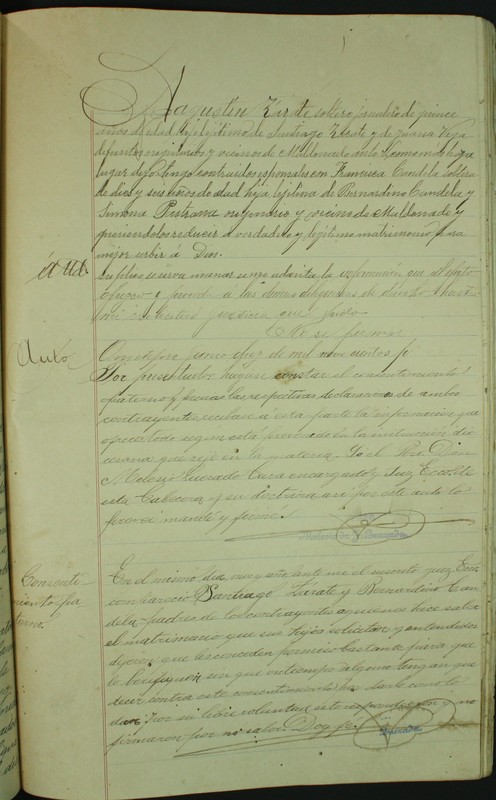 Agustín Zarate soltero jornalero de quince
años de edad hijo lejítimo de Santiago Zarate y de Juana Vega
difuntos orijinarios y vecinos de Maldonado ante U. como mas haya
lugar digo: tengo contraidos esponsales con Francisca Candela soltera
de diez y seis años de edad hija lejítima de Bernardino Candela y
Simona Pastrana orijinario y vecino de Maldonado y
queriendolos reducir á verdadero y lejítimo matrimonio para
mejor servir á Dios.
á Ud.
suplico se sirva mandar se me admita la información que al efecto
ofrezco y proceder á las demas diligencias de
mi solicitud justicia que pido
No se firmar
Auto
Ometepec junio diez de mil nove cientos
Por presentado: hágase constar el consentimiento
paterno y las respectivas declaraciones de ambos
contrayentes recíbase á esta parte la información que
ofrece todo segun está prevenido en la instrucción dio
cesana que rije en la materia. Yo el Pbro. Don
Melesio Quezada Cura encargado y Juez Ecco. de
esta Cabecera y su doctrina así por este auto lo
proveí mandé y firmé.
Melesio Quezada
Consenti
miento pa
terno.
En el mismo día, mes y año, ante mi el suscrito Juez Ecco.
compareció Santiago Zárate y Bernardino Can
dela, padres de los contrayentes a quienes hice saber
el matrimonio que sus hijos solicitan y entendidos
dijeron: que les conceden permiso bastante para que
lo verifiquen sin que en tiempo alguno tengan que
decir contra este consentimiento
dan por su libre voluntad esto respondieron y no
firmaron por no saber. Doy fé.
Quezada